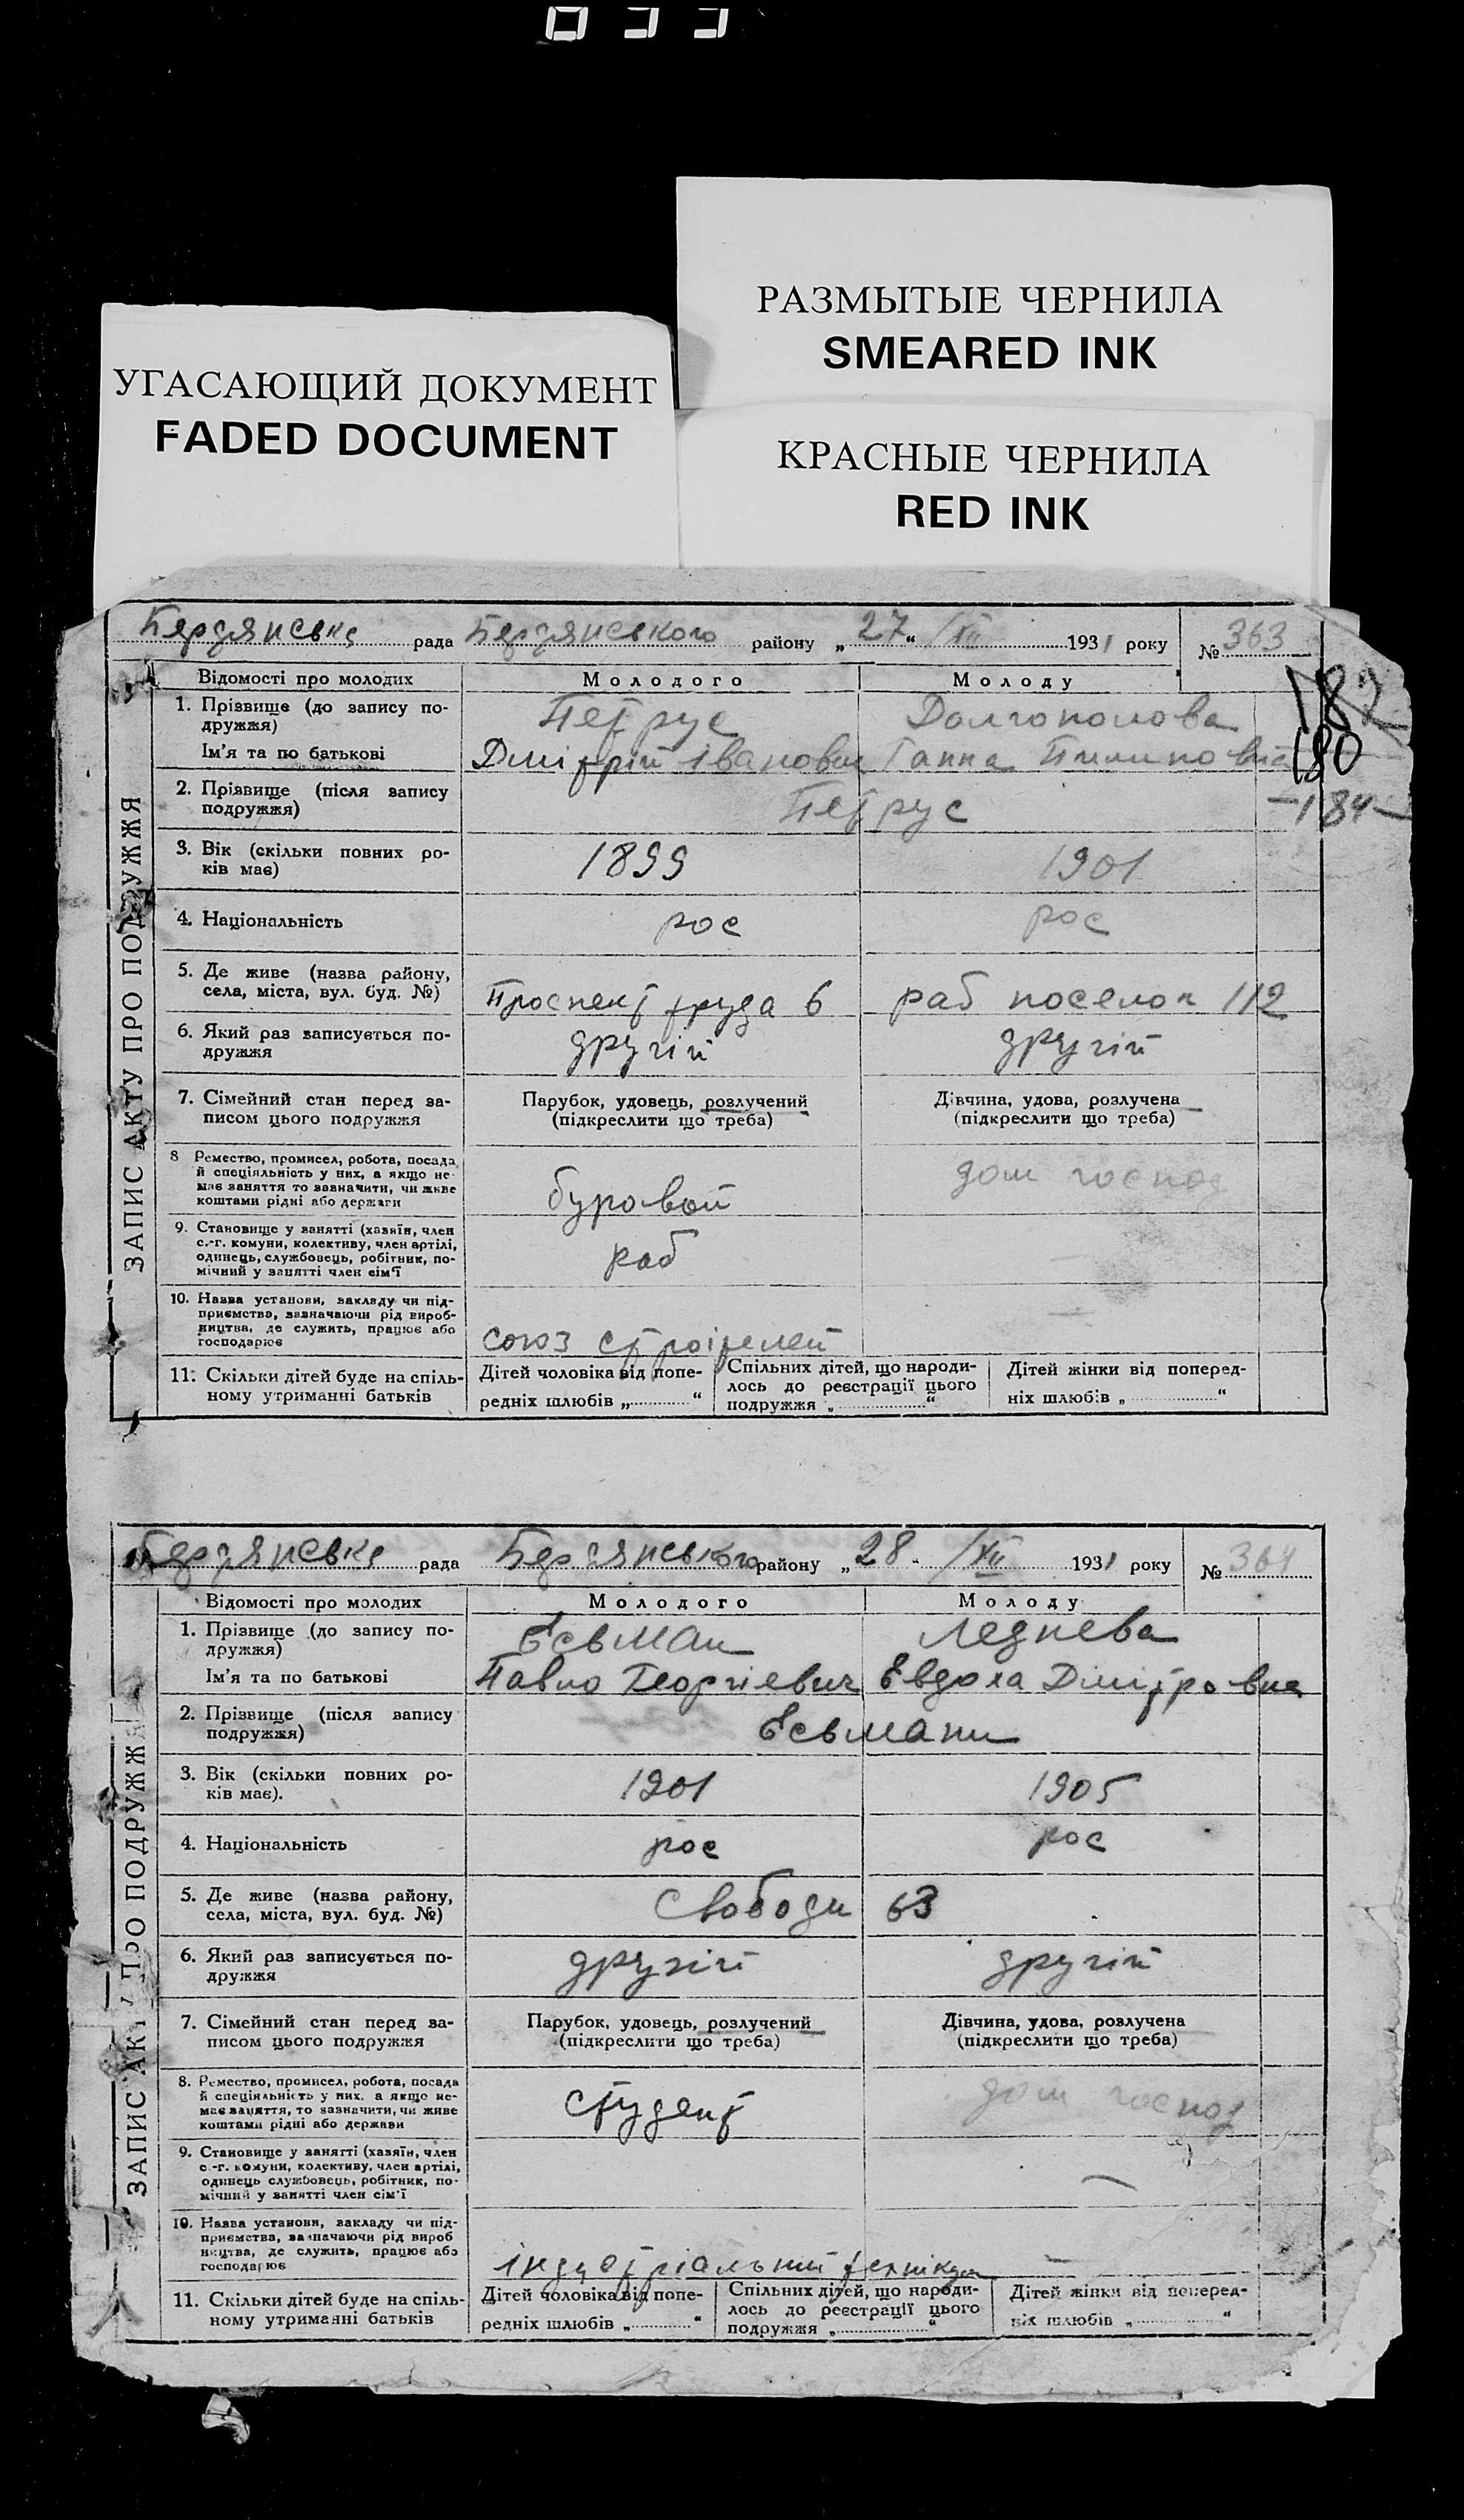 РАЗМЫТЫЕ ЧЕРНИЛА
SMEARED INK
УГАСАЮЩИЙ ДОКУМЕНТ
FADED DOCUMENT
КРАСНЫЕ ЧЕРНИЛА
RED INK
ЗАПИС АКТУ ПРО ПОДРУЖЖЯ
Бердянська рада Бердянського району „27“ /XII 1931 року № 363
Відомості про молодих Молодого Молоду
182
1. Прізвище (до запису по-
дружжя) Петрус Долгополова
Ім'я та по батькові Дмітрій Іванович Ганна Пилиповна
180
2. Прізвище (після запису
подружжя) Петрус
-184-
3. Вік (скільки повних ро-
ків має) 1899 1901
4. Національність рос рос
5. Де живе (назва району,
села, міста, вул. буд. №) Проспект труда 6 раб поселок 112
6. Який раз записується по-
дружжя другій другій
7. Сімейний стан перед за-
писом цього подружжя
Парубок, удовець, розлучений
(підкреслити що треба)
Дівчина, удова, розлучена
(підкреслити що треба)
8 Ремество, промисел, робота, посада
й спеціяльність у них, а якщо не-
має заняття то зазначити, чи живе
коштами рідні або держави
буровой дом господ
9. Становище у занятті (хазяїн, член
с.-г. комуни, колективу, член артілі,
одинець, службовець, робітник, по-
мічний у занятті член сім'ї
раб
10. Назва установи, закладу чи під-
приємства, зазначаючи рід вироб-
ництва, де служить, працює або
господарює
союз строітелей
11. Скільки дітей буде на спіль-
ному утриманні батьків
Дітей чоловіка від попе-
редніх шлюбів „ “
Спільних дітей, що народи-
лось до реєстрації цього
подружжя „ “
Дітей жінки від поперед-
ніх шлюбів „ “
ЗАПИС АКТУ ПРО ПОДРУЖЖЯ
Бердянська рада Бердянського району „28 /XII 1931 року № 364
Відомості про молодих Молодого Молоду
1. Прізвище (до запису по-
дружжя) Єсьман Леднева
Ім'я та по батькові Павло Георгіевич Евдоха Дмітровна
2. Прізвище (після запису
подружжя) Єсьмани
3. Вік (скільки повних ро-
ків має). 1901 1905
4. Національність рос рос
5. Де живе (назва району,
села, міста, вул. буд. №) Свободи 63
6. Який раз записується по-
дружжя другій другій
7. Сімейний стан перед за-
писом цього подружжя
Парубок, удовець, розлучений
(підкреслити що треба)
Дівчина, удова, розлучена
(підкреслити що треба)
8. Ремество, промисел, робота, посада
й спеціяльність у них, а якщо не-
має заняття, то зазначити, чи живе
коштами рідні або держави
студент дом господ
9. Становище у занятті (хазяїн, член
с.-г. комуни, колективу, член артілі,
одинець службовець, робітник, по-
мічний у занятті член сім'ї
10. Назва установи, закладу чи під-
приємства, зазначаючи рід вироб
ництва, де служить, працює або
господарює
індустріальний технікум
11. Скільки дітей буде на спіль-
ному утриманні батьків
Дітей чоловіка від попе-
редніх шлюбів „ “
Спільних дітей, що народи-
лось до реєстрації цього
подружжя „ “
Дітей жінки від поперед-
ніх шлюбів „ “